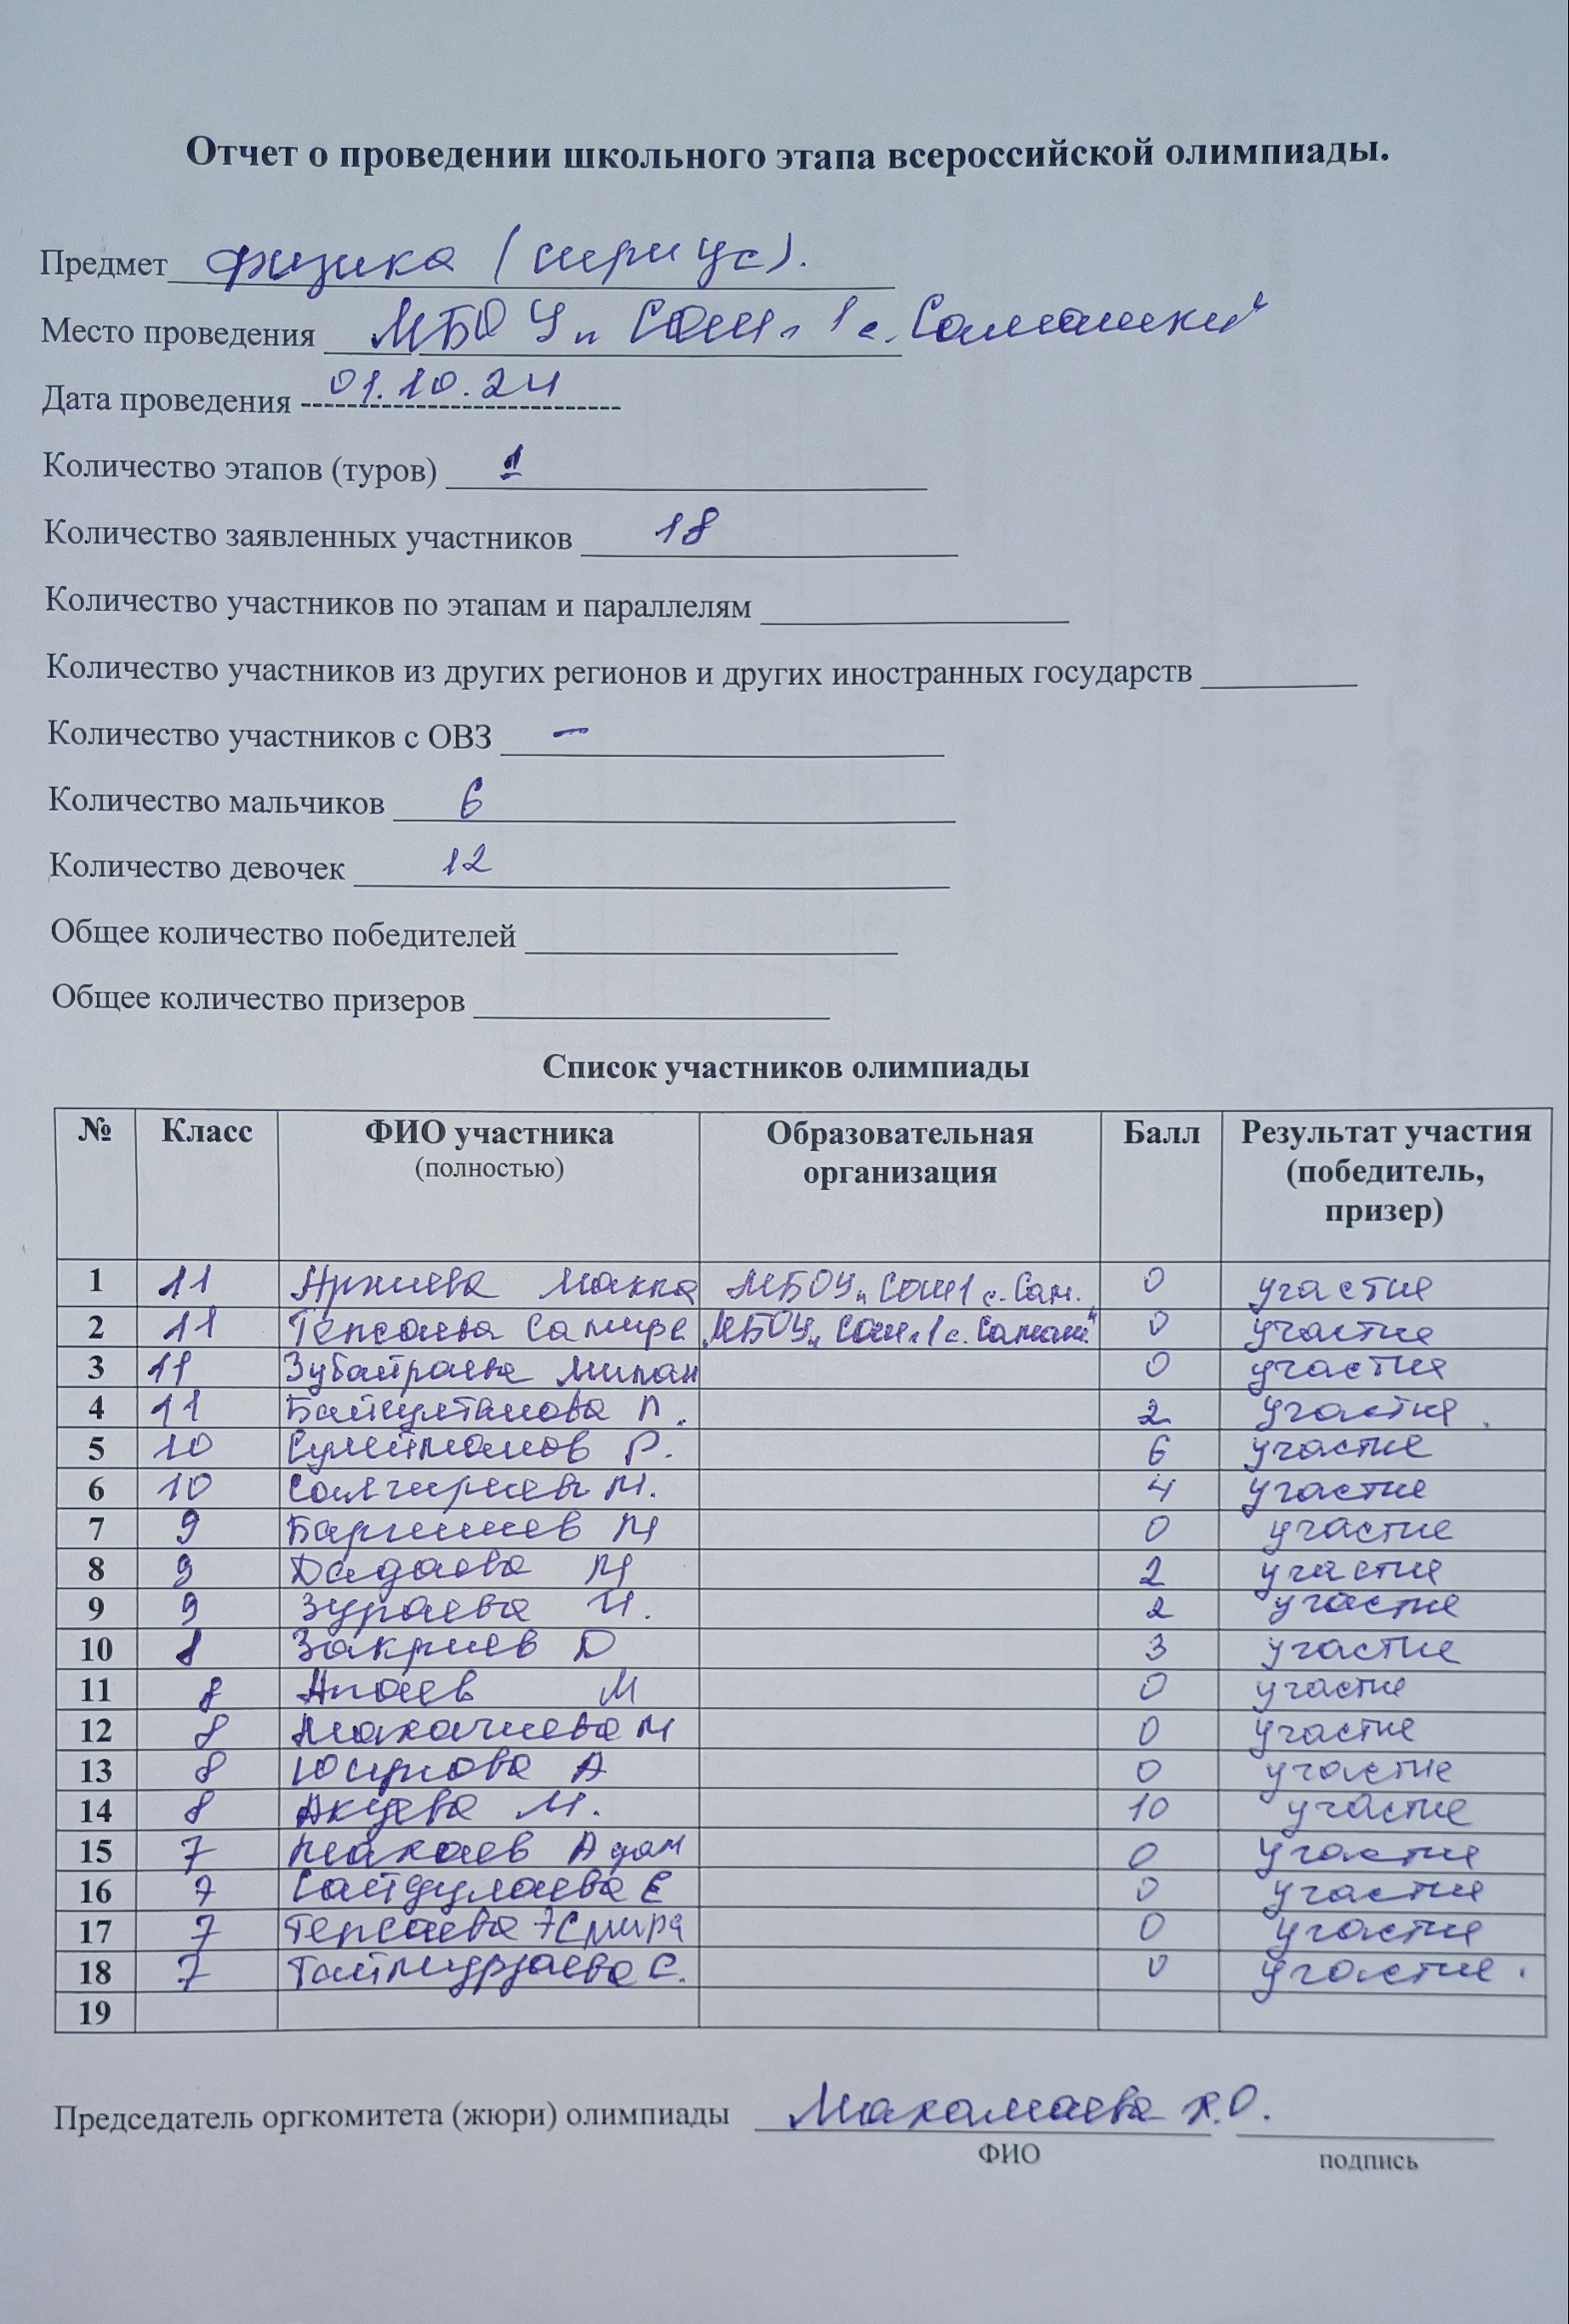 Отчет о проведении школьного этапа всероссийской олимпиады.
Предмет физика (сириус).
Место проведения МБОУ „СОШ №1 с. Самашки"
Дата проведения 01.10.24
Количество этапов (туров) 1
Количество заявленных участников 18
Количество участников по этапам и параллелям
Количество участников из других регионов и других иностранных государств
Количество участников с ОВЗ –
Количество мальчиков 6
Количество девочек 12
Общее количество победителей
Общее количество призеров
Список участников олимпиады
№ Класс ФИО участника (полностью) Образовательная организация Балл Результат участия (победитель, призер)
1 11 Аржиева Макка МБОУ „СОШ1 с. Сам. 0 участие
2 11 Тепсаева Самира МБОУ „СОШ №1 с. Самаш." 0 участие
3 11 Зубайраева Милан 0 участие
4 11 Байсултанова 2 участие.
5 10 Сулейманов Р. 6 участие
6 10 Салгириева М. 4 участие
7 9 М 0 участие
8 9 Дадаева М 2 участие
9 9 Зураева И. 2 участие
10 8 Закриев D 3 участие
11 8 Апаев М 0 участие
12 8 Махачиева М 0 участие
13 8 Юсупова А 0 участие
14 8 Акуева М. 10 участие
15 7 Махаев Адам 0 участие
16 7 Сайдулаева Е 0 участие
17 7 Тепсаева Эсмира 0 участие
18 7 Таймурзаева С. 0 участие.
19
Председатель оргкомитета (жюри) олимпиады Махамаева Х.О.
ФИО подпись